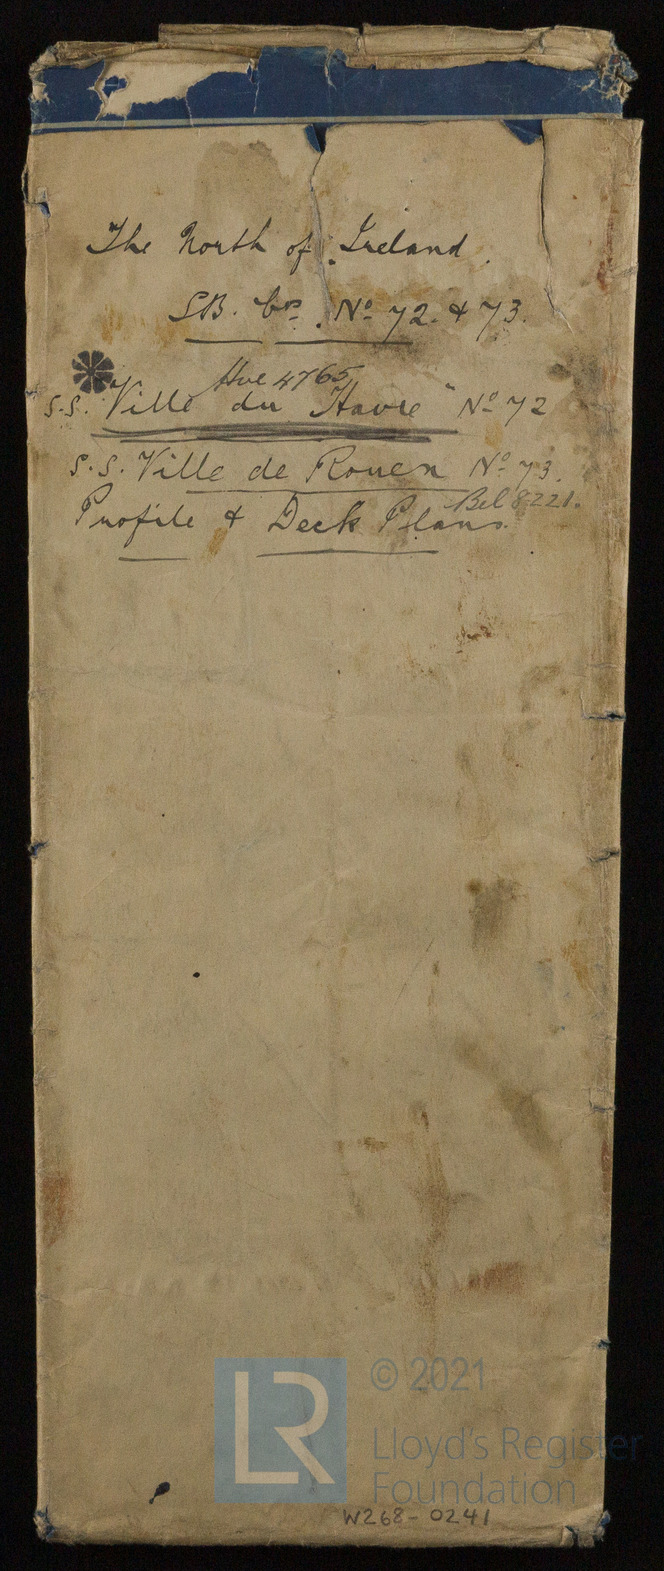 The North of Ireland.
S.B. Co. No 72. & 73.
Hve 4765
S.S. "Ville du Havre" No 72
S.S. Ville de Rouen No 73.
Bel 8221.
Profile & Deck Plans.
LR
© 2021
Lloyd's Register
Foundation
W268-0241